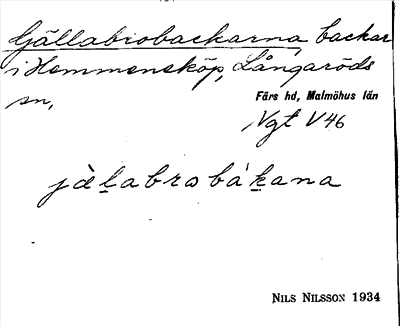 Gällabrobackarna, backar
i Hemmeneköp, Långaröds
sn,
Färs hd, Malmöhus län
Ngt V46
jàl̠abrobák̠ana
NILS NILSSON 1934